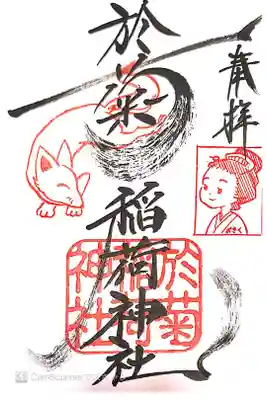 奉拝
於菊
稲荷神社
おきく
於菊
稲荷
神社
CamScanner